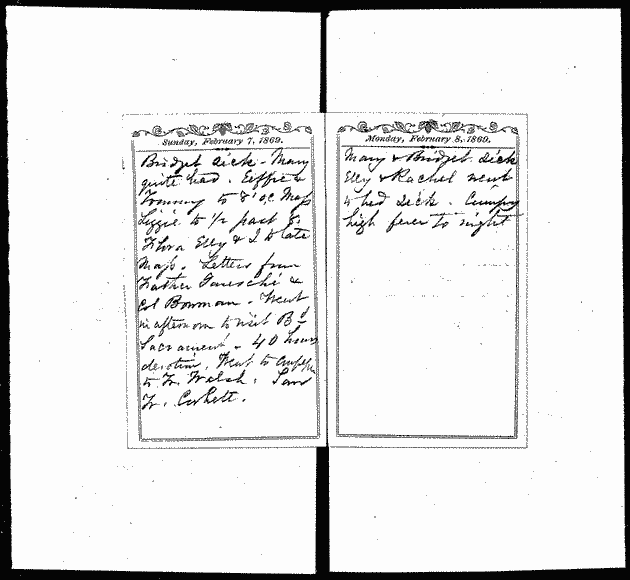 Sunday, February 7, 1869.
Bridget sick - Mary
quite bad. Effie &
Tommy to 8 oc Mass
Lizzie to 1/2 past 8.
Flora Elly & I to late
Mass. Letters from
Father &
Col Bowman. Went
in afternoon to visit Bd
Sacrament - 40 hours
devotion. Went to
to Fr. Welsh. Saw
Fr. Corbett.
Monday, February 8, 1869.
Mary & Bridget sick
Elly & Rachel went
to bed sick.
high fever to night